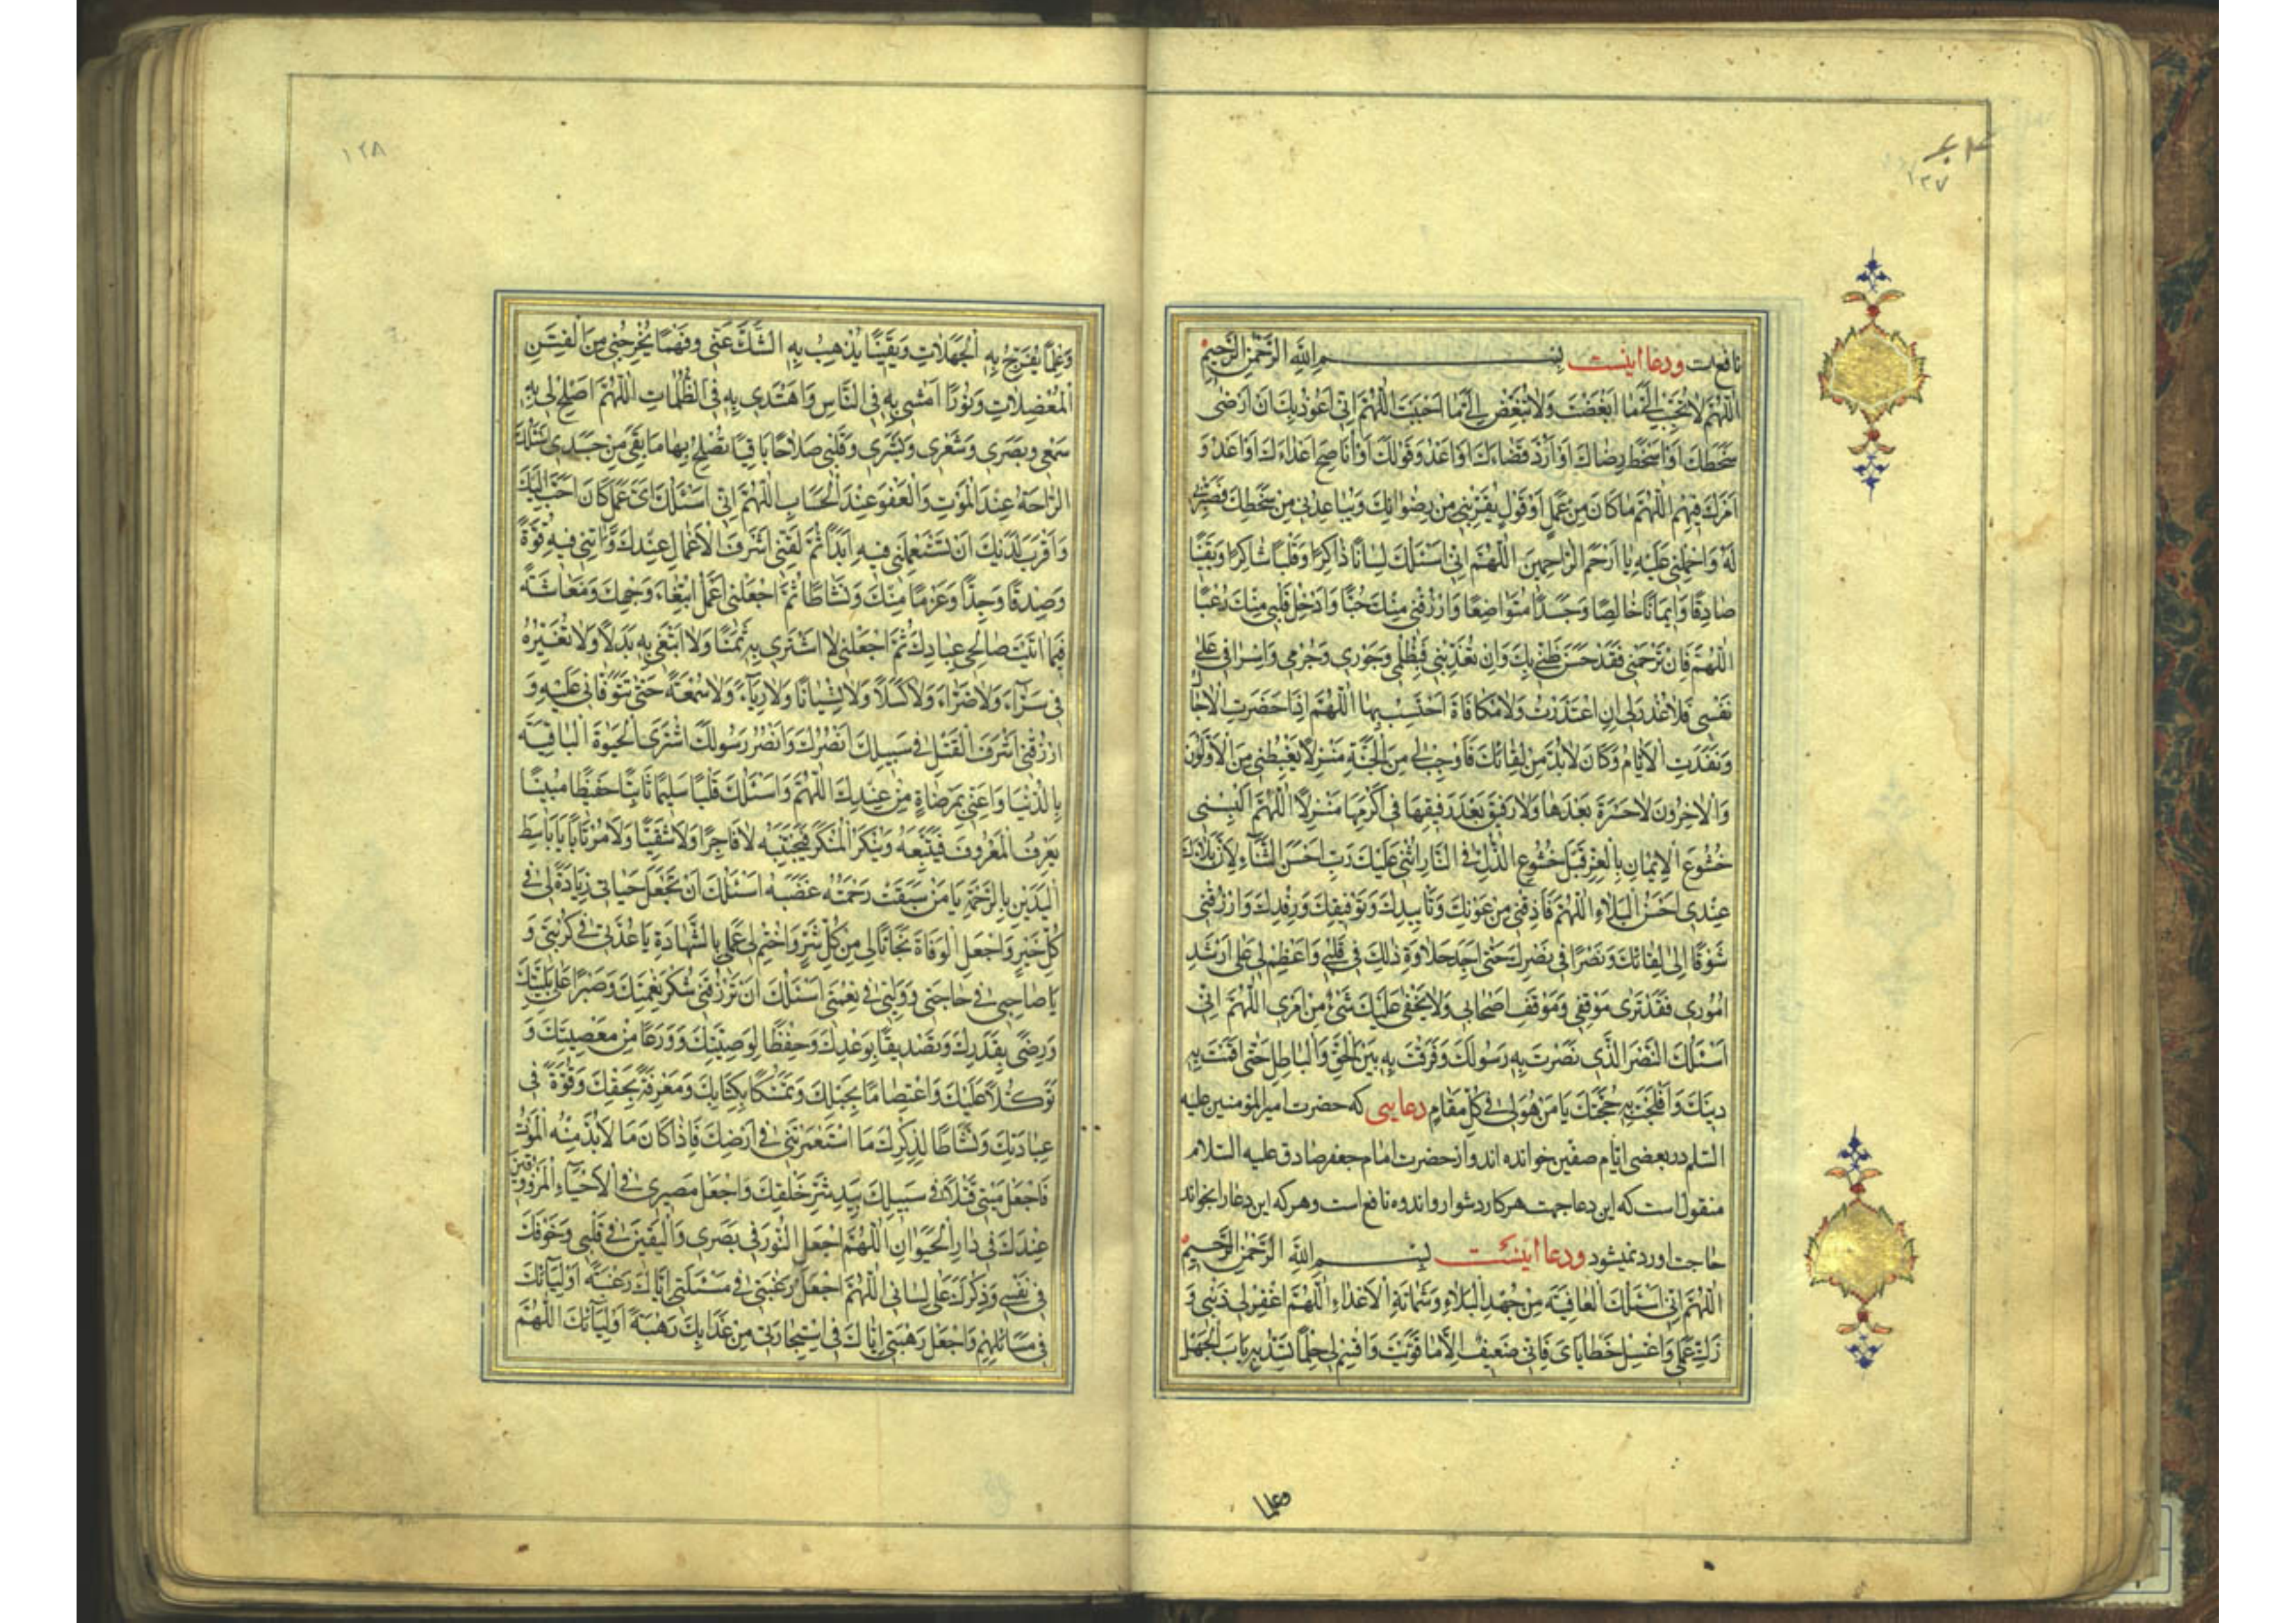 ١٢٧
نافع است ودعا اینست بِسْمِ اللهِ الرَّحْمٰنِ الرَّحِیمِ
اَللّٰهُمَّ لا تُحَبِّبْ اِلَیَّ ما اَبْغَضْتَ وَلا تُبَغِّضْ اِلَیَّ ما اَحْبَبْتَ اَللّٰهُمَّ اِنّی اَعُوذُ بِكَ اَنْ اَرْضٰی
سَخَطَكَ اَوْ اَسْخَطَ رِضاكَ اَوْ اَرُدَّ قَضاءَكَ اَوْ اَعْدُوَ قَوْلَكَ اَوْ اُناصِحَ اَعْداءَكَ اَوْ اَعْدُوَ
اَمْرَكَ فِیهِمْ اَللّٰهُمَّ ما كانَ مِنْ عَمَلٍ اَوْ قَوْلٍ یُقَرِّبُنی مِنْ رِضْوانِكَ وَیُباعِدُنی مِنْ سَخَطِكَ فَصَبِّرْنی
لَهُ وَاحْمِلْنی عَلَیْهِ یا اَرْحَمَ الرّاحِمِینَ اَللّٰهُمَّ اِنّی اَسْئَلُكَ لِساناً ذاكِراً وَقَلْباً شاكِراً وَیَقیناً
صادِقاً وَایماناً خالِصاً وَجَسَداً مُتَواضِعاً وَارْزُقْنی مِنْكَ حُبّاً وَاَدْخِلْ قَلْبی مِنْكَ رُعْباً
اَللّٰهُمَّ فَاِنْ تَرْحَمْنی فَقَدْ حَسُنَ ظَنّی بِكَ وَاِنْ تُعَذِّبْنی فَبِظُلْمی وَجَوْری وَجُرْمی وَاِسْرافی عَلٰی
نَفْسی فَلا عُذْرَ لی اِنِ اعْتَذَرْتُ وَلا مُكافاةَ اَحْتَسِبُ بِها اَللّٰهُمَّ اِذا حَضَرَتِ الْاٰجالُ
وَنَفَدَتِ الْاَیّامُ وَكانَ لا بُدَّ مِنْ لِقائِكَ فَاَوْجِبْ لی مِنَ الْجَنَّةِ مَنْزِلاً یَغْبِطُنی مِنَ الْاَوَّلُونَ
وَالْاٰخِرُونَ لا حَسْرَةَ بَعْدَها وَلا رَفیقَ بَعْدَ رَفیقِها فی اَكْرَمِها مَنْزِلاً اَللّٰهُمَّ اَلْبِسْنی
خُشُوعَ الْایمانِ بِالْعِزِّ قَبْلَ خُشُوعِ الذُّلِّ فِی النّارِ اُثْنی عَلَیْكَ رَبِّ اَحْسَنَ الثَّناءِ لِاَنَّ بَلاءَكَ
عِنْدی اَحْسَنُ الْبَلاءِ اَللّٰهُمَّ فَاَذِقْنی مِنْ عَوْنِكَ وَتَأییدِكَ وَتَوْفیقِكَ وَرِفْدِكَ وَارْزُقْنی
شَوْقاً اِلٰی لِقائِكَ وَنَصْراً فی نَصْرِكَ حَتّٰی اَجِدَ حَلاوَةَ ذٰلِكَ فی قَلْبی وَاعْظِمْ لی عَلٰی اَرْشَدِ
اُمُوری فَقَدْ تَرٰی مَوْقِفی وَمَوْقِفَ اَصْحابی وَلا یَخْفٰی عَلَیْكَ شَیْءٌ مِنْ اَمْری اَللّٰهُمَّ اِنّی
اَسْئَلُكَ النَّصْرَ الَّذی نَصَرْتَ بِهِ رَسُولَكَ وَفَرَقْتَ بِهِ بَیْنَ الْحَقِّ وَالْباطِلِ حَتّٰی اَقَمْتَ بِهِ
دینَكَ وَاَفْلَجْتَ بِهِ حُجَّتَكَ یا مَنْ هُوَ لی فی كُلِّ مَقامٍ دعایی كه حضرت امیرالمؤمنین علیه
السّلم در بعضی ایّام صفّین خوانده اند واز حضرت امام جعفر صادق علیه السّلام
منقول است كه این دعا جهت هر كار دشوار واندوه نافع است وهر كه این دعا را بخواند
حاجت اورد نمیشود ودعا اینست بِسْمِ اللهِ الرَّحْمٰنِ الرَّحیمِ
اَللّٰهُمَّ اِنّی اَسْئَلُكَ الْعافِیَةَ مِنْ جُهْدِ الْبَلاءِ وَشَماتَةِ الْاَعْداءِ اَللّٰهُمَّ اغْفِرْ لی ذَنْبی وَ
زَكِّ عَمَلی وَاغْسِلْ خَطایایَ فَاِنّی ضَعیفٌ اِلّا ما قَوَّیْتَ وَاقْسِمْ لی حِلْماً تَسُدُّ بِهِ بابَ الْجَهْلِ
وعلما
١٢٨
وَعِلْماً یُفَرَّجُ بِهِ الْجَهَلاتِ وَیَقیناً یُذْهِبُ بِهِ الشَّكَّ عَنّی وَفَهْماً یُخْرِجُنی مِنَ الْفِتَنِ
الْمُعْضِلاتِ وَنُوراً اَمْشی بِهِ فِی النّاسِ وَاَهْتَدی بِهِ فِی الظُّلُماتِ اَللّٰهُمَّ اَصْلِحْ لی بِهِ
سَمْعی وَبَصَری وَشَعْری وَبَشَری وَقَلْبی صَلاحاً باقِیاً تُصْلِحُ بِها ما بَقِیَ مِنْ جَسَدی اَسْئَلُكَ
الرّاحَةَ عِنْدَ الْمَوْتِ وَالْعَفْوَ عِنْدَ الْحِسابِ اَللّٰهُمَّ اِنّی اَسْئَلُكَ اَیَّ عَمَلٍ كانَ اَحَبَّ اِلَیْكَ
وَاَقْرَبَ لَدَیْكَ اَنْ تَسْتَعْمِلَنی فیهِ اَبَداً ثُمَّ لَقِّنی اَشْرَفَ الْاَعْمالِ عِنْدَكَ وَاٰتِنی فیهِ قُوَّةً
وَصِدْقاً وَجِدّاً وَعَزْماً مِنْكَ وَنَشاطاً ثُمَّ اجْعَلْنی اَعْمَلُ ابْتِغاءَ وَجْهِكَ وَمَعاشَةً
فیما اٰتَیْتَ صالِحی عِبادِكَ ثُمَّ اجْعَلْنی لا اَشْتَری بِهِ ثَمَناً وَلا اَبْتَغی بِهِ بَدَلاً وَلا تُغَیِّرْهُ
فی سَرّاءَ وَلا ضَرّاءَ وَلا كَسَلاً وَلا نِسْیاناً وَلا رِیاءً وَلا سُمْعَةً حَتّٰی تَتَوَفّانی عَلَیْهِ وَ
ارْزُقْنی اَشْرَفَ الْقَتْلِ فی سَبیلِكَ اَنْصُرُكَ وَاَنْصُرُ رَسُولَكَ اَشْتَرِی الْحَیٰوةَ الْباقِیَةَ
بِالدُّنْیا وَاَعِنّی بِمَرْضاةٍ مِنْ عِنْدِكَ اَللّٰهُمَّ وَاَسْئَلُكَ قَلْباً سَلیماً ثابِتاً حَفیظاً مُبیناً
یَعْرِفُ الْمَعْرُوفَ فَیَتَّبِعُهُ وَیُنْكِرُ الْمُنْكَرَ فَیَجْتَنِبُهُ لا فاجِراً وَلا شَقِیّاً وَلا مُرْتاباً یا باسِطَ
الْیَدَیْنِ بِالرَّحْمَةِ یا مَنْ سَبَقَتْ رَحْمَتُهُ غَضَبَهُ اَسْئَلُكَ اَنْ تَجْعَلَ حَیاتی زِیادَةً لی فی
كُلِّ خَیْرٍ وَاجْعَلِ الْوَفاةَ نَجاتاً لی مِنْ كُلِّ شَرٍّ وَاخْتِمْ لی عَمَلی بِالشَّهادَةِ یا عُدَّتی فی كُرْبَتی وَ
یا صاحِبی فی حاجَتی وَوَلِیّی فی نِعْمَتی اَسْئَلُكَ اَنْ تَرْزُقَنی شُكْرَ نِعْمَتِكَ وَصَبْراً عَلٰی بَلِیَّتِكَ
وَرِضًی بِقَدَرِكَ وَتَصْدیقاً بِوَعْدِكَ وَحِفْظاً لِوَصِیَّتِكَ وَوَرَعاً مِنْ مَعْصِیَتِكَ وَ
تَوَكُّلاً عَلَیْكَ وَاعْتِصاماً بِحَبْلِكَ وَتَمَسُّكاً بِكِتابِكَ وَمَعْرِفَةً بِحَقِّكَ وَقُوَّةً فی
عِبادَتِكَ وَنَشاطاً لِذِكْرِكَ مَا اسْتَعْمَرْتَنی فی اَرْضِكَ فَاِذا كانَ ما لا بُدَّ مِنْهُ الْمَوْتُ
فَاجْعَلْ مَیْتَتی قَتْلاً فی سَبیلِكَ بِیَدِ شَرِّ خَلْقِكَ وَاجْعَلْ مَصیری فِی الْاَحْیاءِ الْمَرْزُوقینَ
عِنْدَكَ فی دارِ الْحَیَوانِ اَللّٰهُمَّ اجْعَلِ النُّورَ فی بَصَری وَالْیَقینَ فی قَلْبی وَخَوْفَكَ
فی نَفْسی وَذِكْرَكَ عَلٰی لِسانی اَللّٰهُمَّ اجْعَلْ رَغْبَتی فی مَسْئَلَتی اِیّاكَ رَغْبَةَ اَوْلِیائِكَ
فی مَسائِلِهِمْ وَاجْعَلْ رَهْبَتی اِیّاكَ فی اسْتِجارَتی مِنْ عَذابِكَ رَهْبَةَ اَوْلِیائِكَ اَللّٰهُمَّ